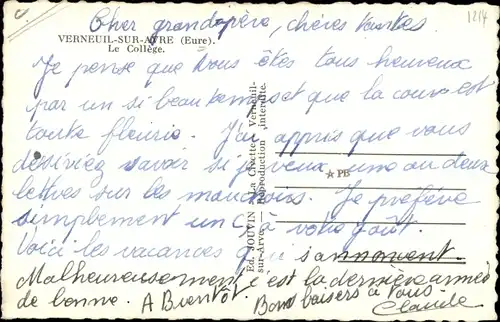 1214
Cher grandpère, chères tantes
VERNEUIL-SUR-AVRE (Eure).
Le Collège.
Je pense que vous êtes tous heureux
par un si beau temps et que la cour est
toute fleurie. J'ai appris que vous
désiriez savoir si je veux une ou deux
lettres sur les mouchoirs. Je préfère
simplement un C à votre goût.
Voici les vacances qui s'annoncent.
Malheureusement c'est la dernière année
de bonne. A Bientôt. Bons baisers à Tous.
Claude
Ed. JOUVIN "La Civette" Verneuil-
sur-Avre. — Reproduction interdite.
PB